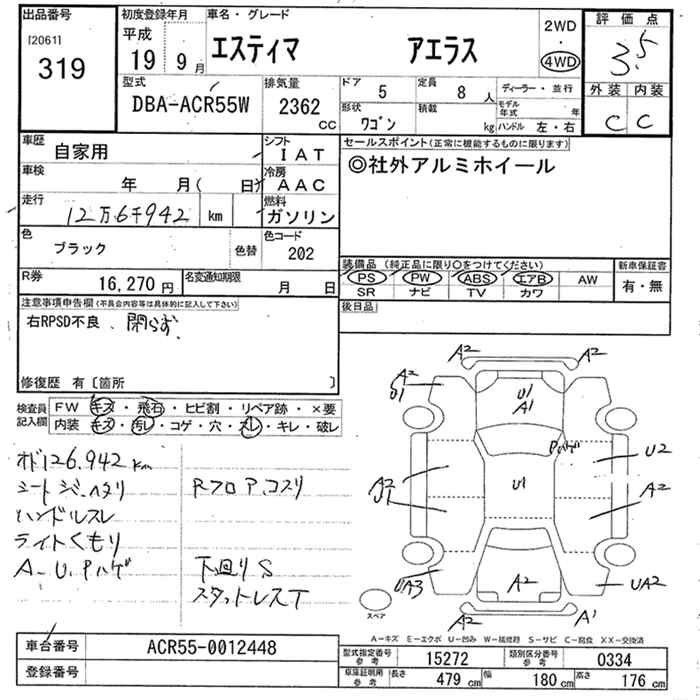 出品番号
[2061]
319
初度登録年月
平成
19年9月
車名・グレード
エスティマ アエラス
2WD
・
4WD
評価点
3.5
外装 内装
C C
型式
DBA-ACR55W
排気量
2362
CC
ドア
5
定員
8人
ディーラー・並行
形状
ワゴン
積載
kg
モデル年式 年
ハンドル 左・右
車歴
自家用
シフト
IAT
車検
年 月( 日)
冷房
AAC
走行
12万6千942 km
燃料
ガソリン
色
ブラック
色替
色コード
202
R券
16,270円
名変通知期限
月 日
セールスポイント(正常に機能するものに限ります)
◎社外アルミホイール
装備品(純正品に限り○をつけてください)
PS PW ABS エアB AW
SR ナビ TV カワ
新車保証書
有・無
後日品
注意事項申告欄(不具合内容等は具体的に記入して下さい)
右RPSD不良、閉らず.
修復歴 有〔箇所 〕
検査員
記入欄
FW キズ・飛石・ヒビ割・リペア跡・×要
内装 キズ・汚レ・コゲ・穴・スレ・キレ・破レ
オド126.942km
シートジ.ヘタリ
ハンドルスレ
ライトくもり
A-U.Pハゲ
Rフロア.コスリ
下回りS
スタットレスT
A2
A2
A2
U1
U1
A1
Pハゲ
U2
A2
U1
U1
A2
UA3
A2
UA2
A2
A1
スペア
A-キズ E-エクボ U-凹み W-補修跡 S-サビ C-腐食 XX-交換済
車台番号
ACR55-0012448
登録番号
型式指定番号
参考
15272
類別区分番号
参考
0334
車庫証明用
参考
長さ 479 cm 幅 180 cm 高さ 176 cm